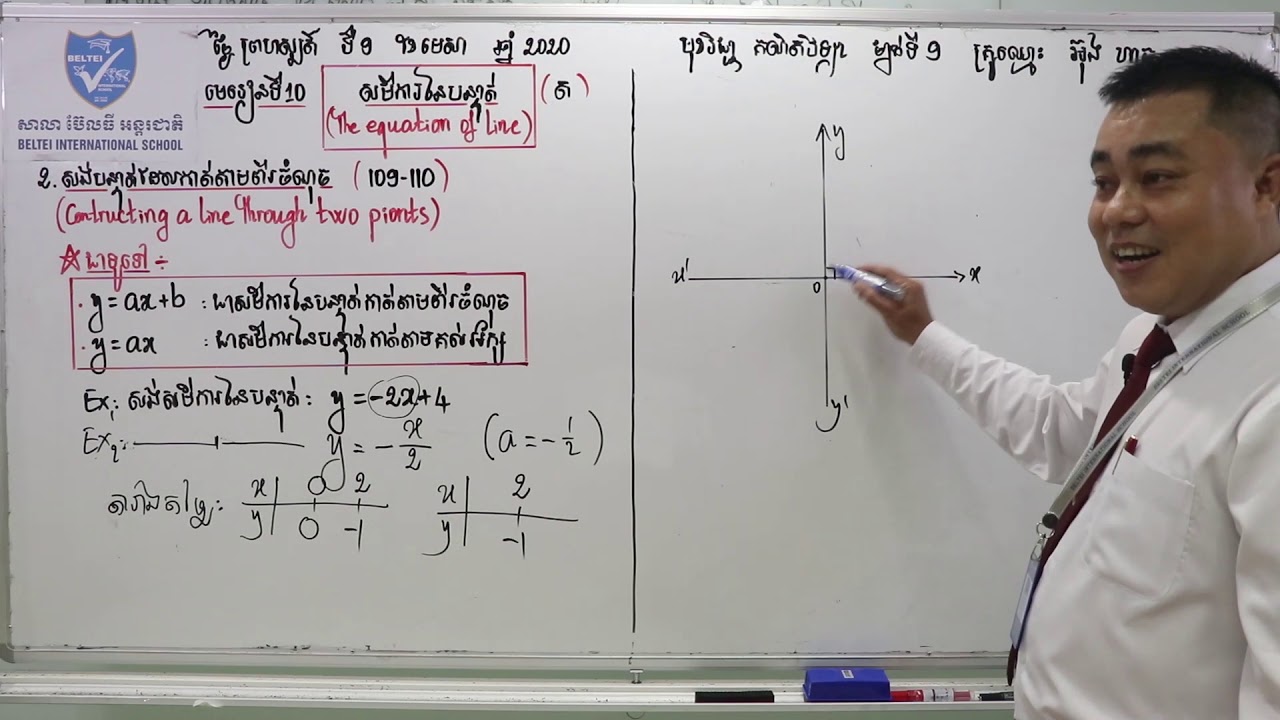 BELTEI
INTERNATIONAL SCHOOL
សាលា ប៊ែលធី អន្តរជាតិ
BELTEI INTERNATIONAL SCHOOL
ថ្ងៃ ព្រហស្បតិ៍ ទី 9 ខែ មេសា ឆ្នាំ 2020
មេរៀនទី 10 សមីការនៃបន្ទាត់ (ត)
(The equation of line)
2. សង់បន្ទាត់ដែលកាត់តាមពីរចំណុច (109-110)
(Contructing a line through two pionts)
ជាទូទៅ ÷
. y = ax + b : ជាសមីការនៃបន្ទាត់កាត់តាមពីរចំណុច
. y = ax : ជាសមីការនៃបន្ទាត់កាត់តាមគល់អ័ក្ស
Ex₁: សង់សមីការនៃបន្ទាត់: y = -2x+4
Ex₂: y = - x/2 (a = - 1/2)
តារាងតម្លៃ:
x | 0 2
y | 0 -1
x | 2
y | -1
មុខវិជ្ជា គណិតវិទ្យា ថ្នាក់ទី 9 គ្រូឈ្មោះ
y
x'
0
x
y'
INTERNATIONAL SCHOOL